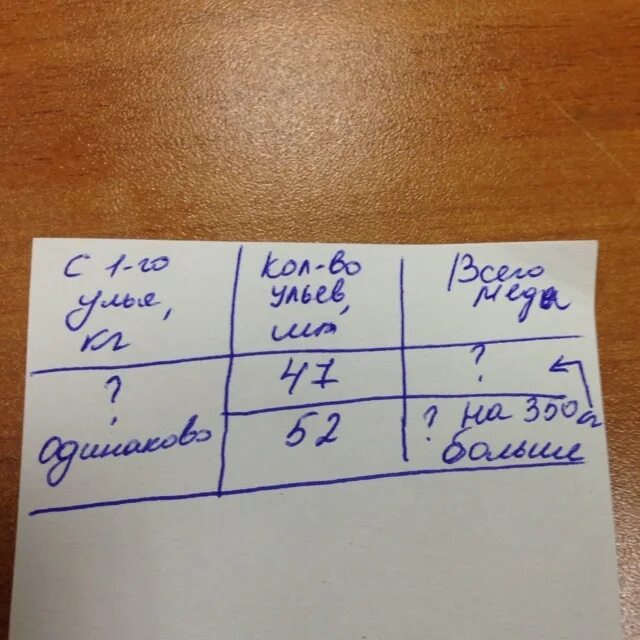 С 1-го
улья,
кг
Кол-во
ульев,
шт
Всего
меда
?
одинаково
47
?
52
? на 350
больше